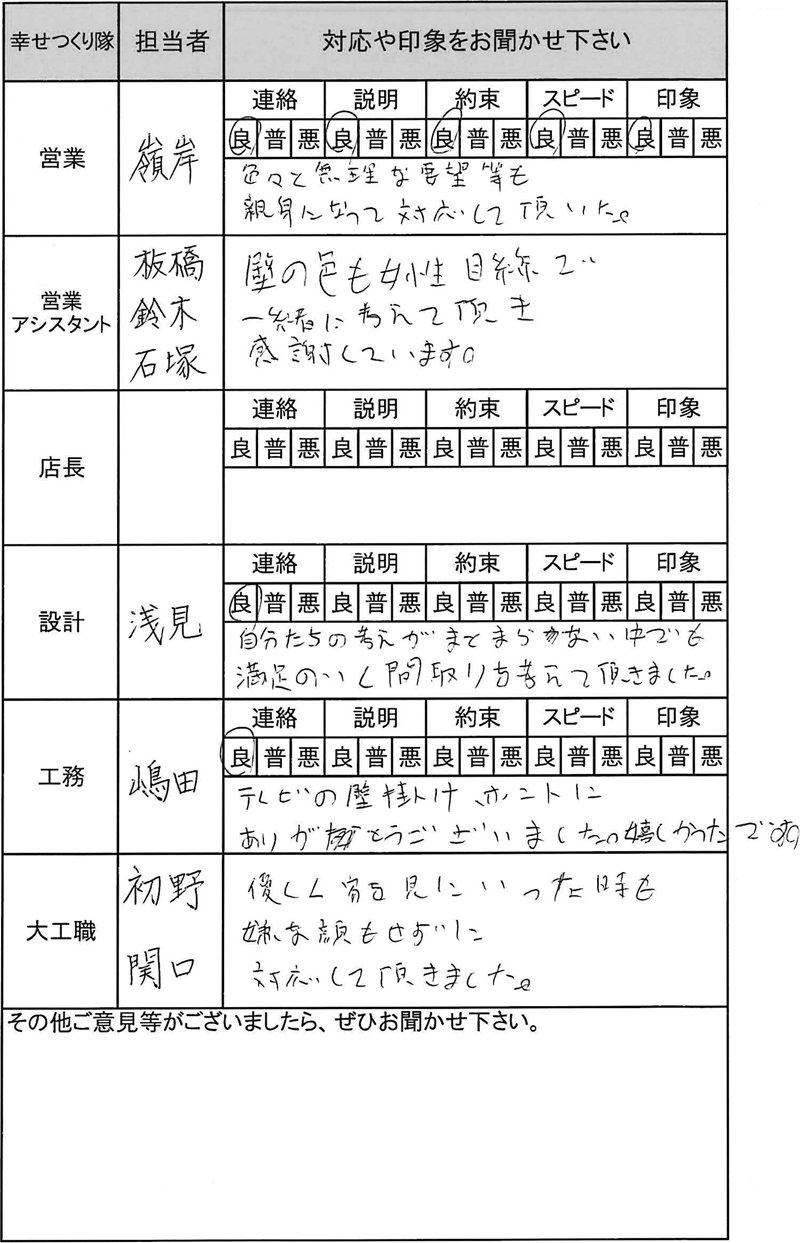 幸せつくり隊 担当者 対応や印象をお聞かせ下さい
営業 嶺岸
連絡 説明 約束 スピード 印象
良 普 悪 良 普 悪 良 普 悪 良 普 悪 良 普 悪
色々と無理な要望等も
親身になって対応して頂いた。
営業
アシスタント
板橋
鈴木
石塚
壁の色も女性目線で
一緒に考えて頂き
感謝しています。
店長
連絡 説明 約束 スピード 印象
良 普 悪 良 普 悪 良 普 悪 良 普 悪 良 普 悪
設計 浅見
連絡 説明 約束 スピード 印象
良 普 悪 良 普 悪 良 普 悪 良 普 悪 良 普 悪
自分たちの考えがまとまらない中でも
満足のいく間取りを考えて頂きました。
工務 嶋田
連絡 説明 約束 スピード 印象
良 普 悪 良 普 悪 良 普 悪 良 普 悪 良 普 悪
テレビの壁掛け、ホントに
ありがとうございました。嬉しかったです。
大工職
初野
関口
優しく 見にいった時も
嫌な顔もせずに
対応して頂きました。
その他ご意見等がございましたら、ぜひお聞かせ下さい。